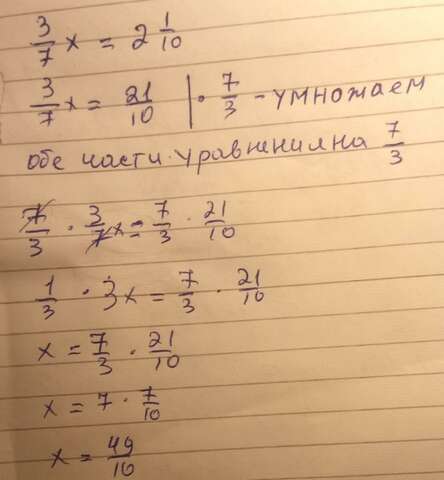 3/7 x = 2 1/10
3/7 x = 21/10 | · 7/3 - умножаем
обе части уравнения на 7/3
7/3 · 3/7 x = 7/3 · 21/10
1/3 · 3x = 7/3 · 21/10
x = 7/3 · 21/10
x = 7 · 7/10
x = 49/10